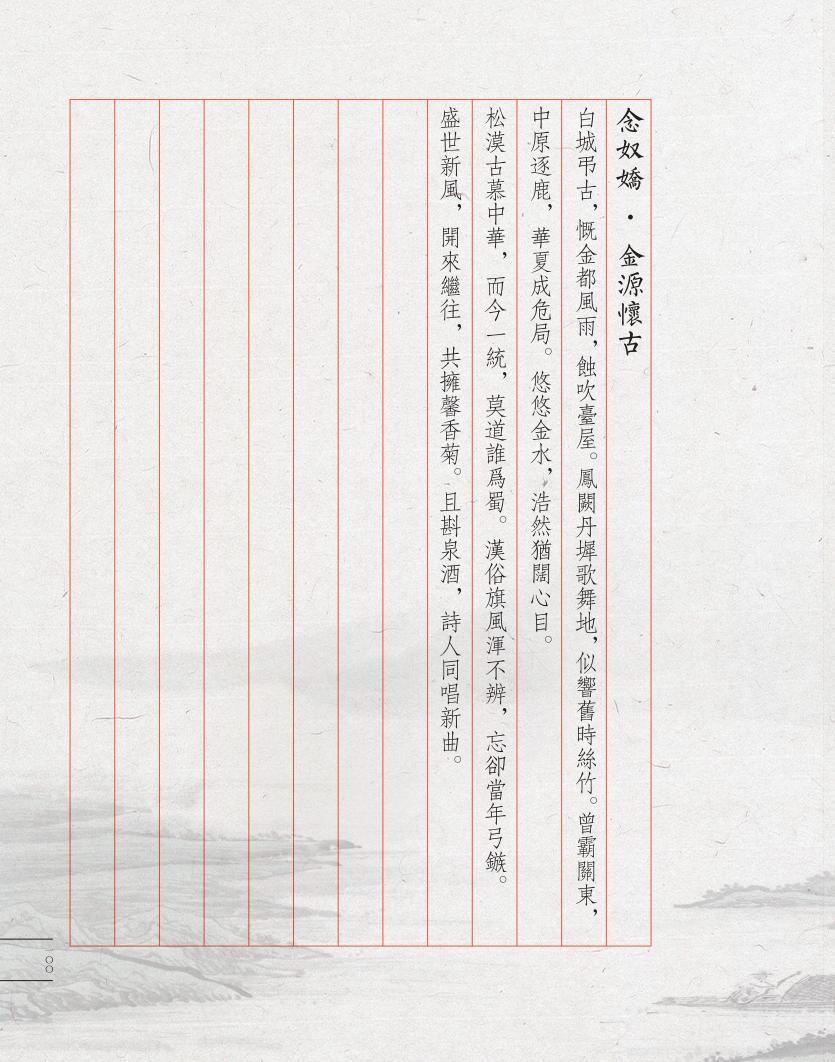 念奴嬌・金源懷古
白城弔古，慨金都風雨，蝕吹臺屋。鳳闕丹墀歌舞地，似響舊時絲竹。曾霸關東，
中原逐鹿，華夏成危局。悠悠金水，浩然猶闊心目。
松漠古慕中華，而今一統，莫道誰爲蜀。漢俗旗風渾不辨，忘卻當年弓鏃。
盛世新風，開來繼往，共擁馨香菊。且斟泉酒，詩人同唱新曲。
〇〇